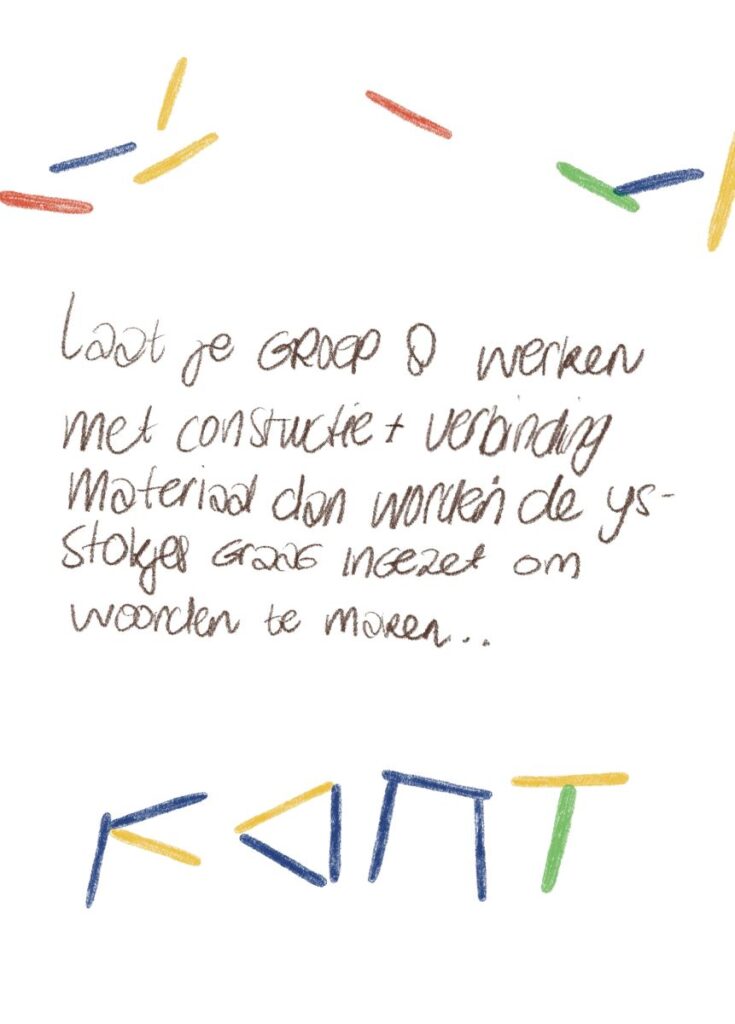 Laat je GROEP 8 werken
met constuctie + verbinding
materiaal dan worden de ys-
stokjes GRAAG INGEZET om
woorden te maken...
KANT